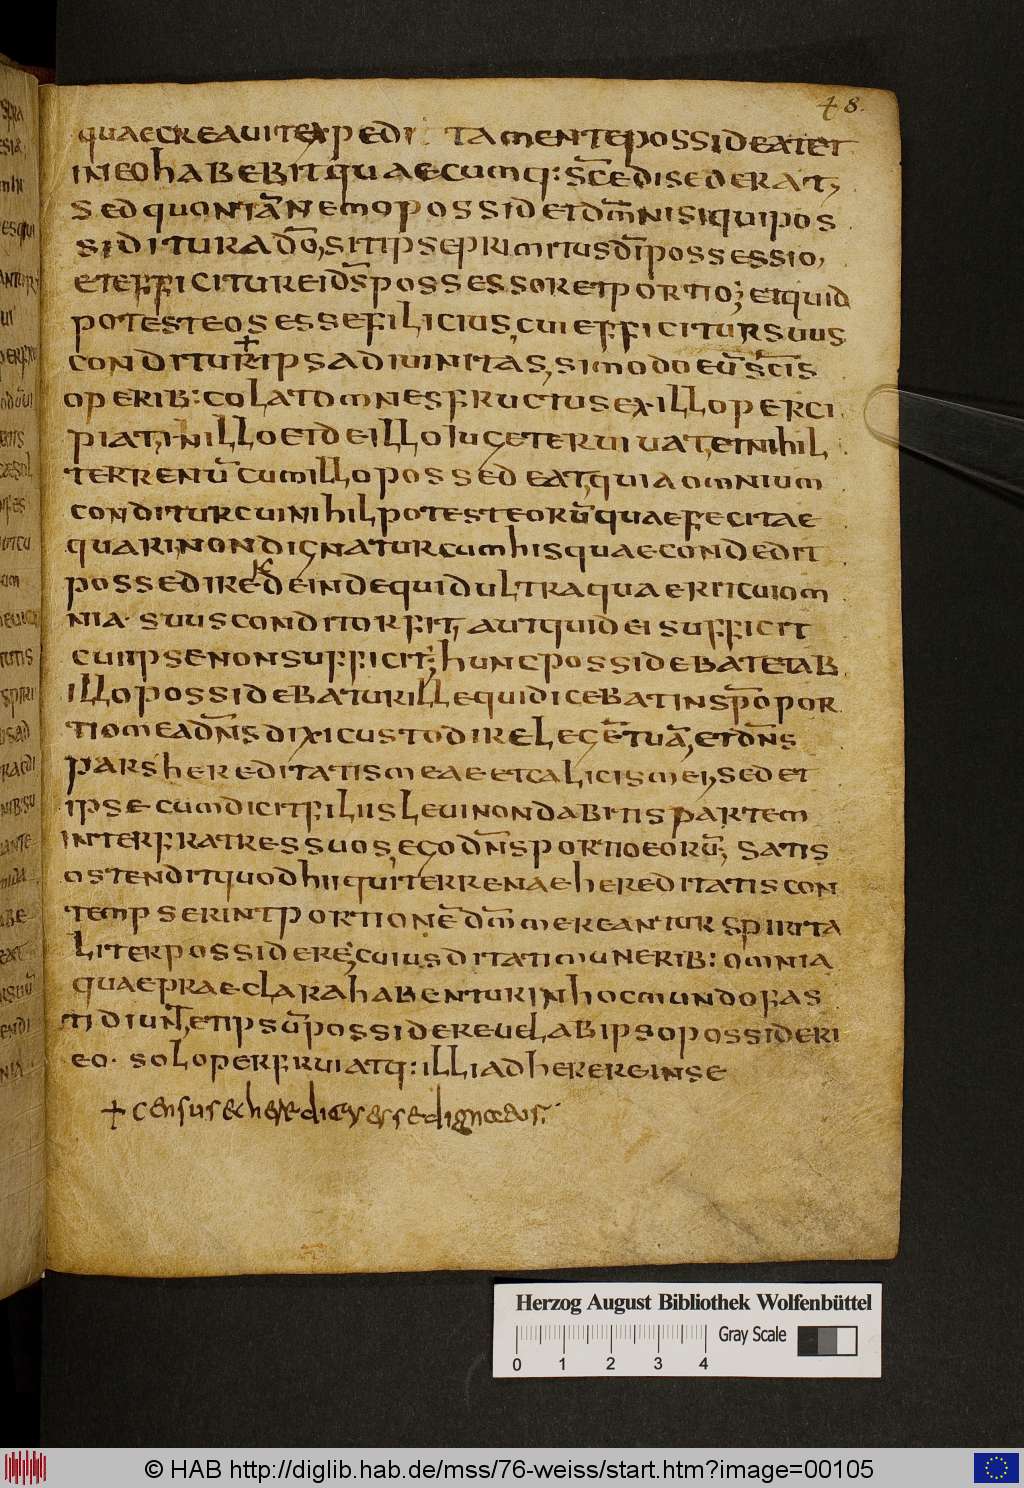 48.
quaecreauitexpedi tamentepossideatet
ineohabebitquaecumq: scedisederat,
sedquoniānemopossidetdm̄nisiquipos
sidituradō, sitipseprimitusdīpossessio,
etefficitureidspossessoretportio; etquid
potesteosessefilicius, cuiefficitursuus
conditur+ipsadiuinitas, simodoeūscīs
operib: colatomnesfructusexilloperci
piatinilloeideilloiugeteruiuat, etnihil
terrenūcumillopossedeat, quiaomnium
conditurcuinihilpotesteorūquaefecitae
quarinondignaturcumhisquaecondedit
possedire deindequidultraquaericuiom
nia suusconditorfit, autquideisufficit
cuiipsenonsufficit; huncpossidebatetab
illopossidebaturillequidicebatinspōpor
tiomeadnsdixicustodirelegētuā, etdns
parshereditatismeaeetcalicismei, sedet
ipsecumdicitfiliisleuinondabitispartem
interfratressuos, egodnsportioeorū; satis
ostenditquodhiiquiterrenaehereditatiscon
tempserintportionēdm̄mereanturspirita
literpossidere, cuiusditatimunerib: omnia
quaepraeclarahabenturinhocmundofas
tidiunt, etipsūpossidereuelabipsopossideri
eo soloperfruiatq: illiadherereinse
Herzog August Bibliothek Wolfenbüttel
Gray Scale
0 1 2 3 4
© HAB http://diglib.hab.de/mss/76-weiss/start.htm?image=00105